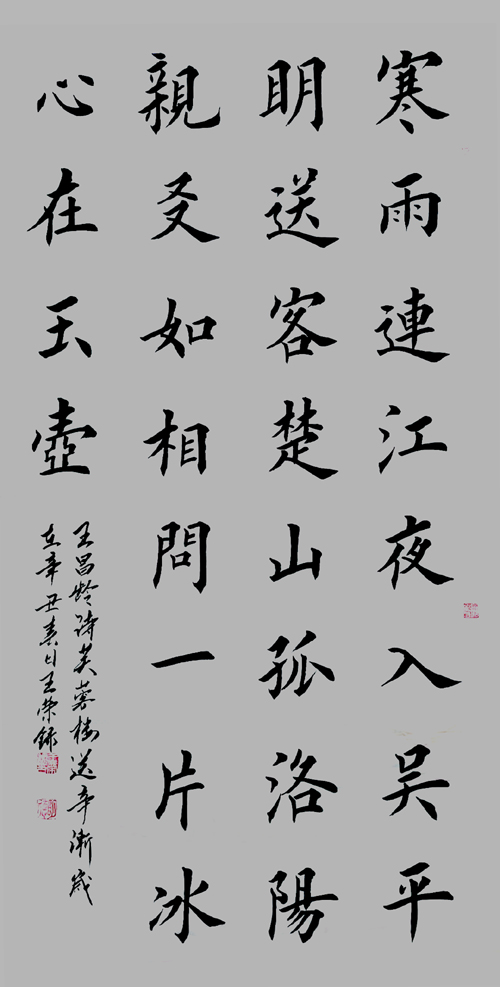 寒雨連江夜入吴平
明送客楚山孤洛陽
親友如相問一片冰
心在玉壺
王昌齡詩芙蓉樓送辛漸歲
在辛丑春日王榮